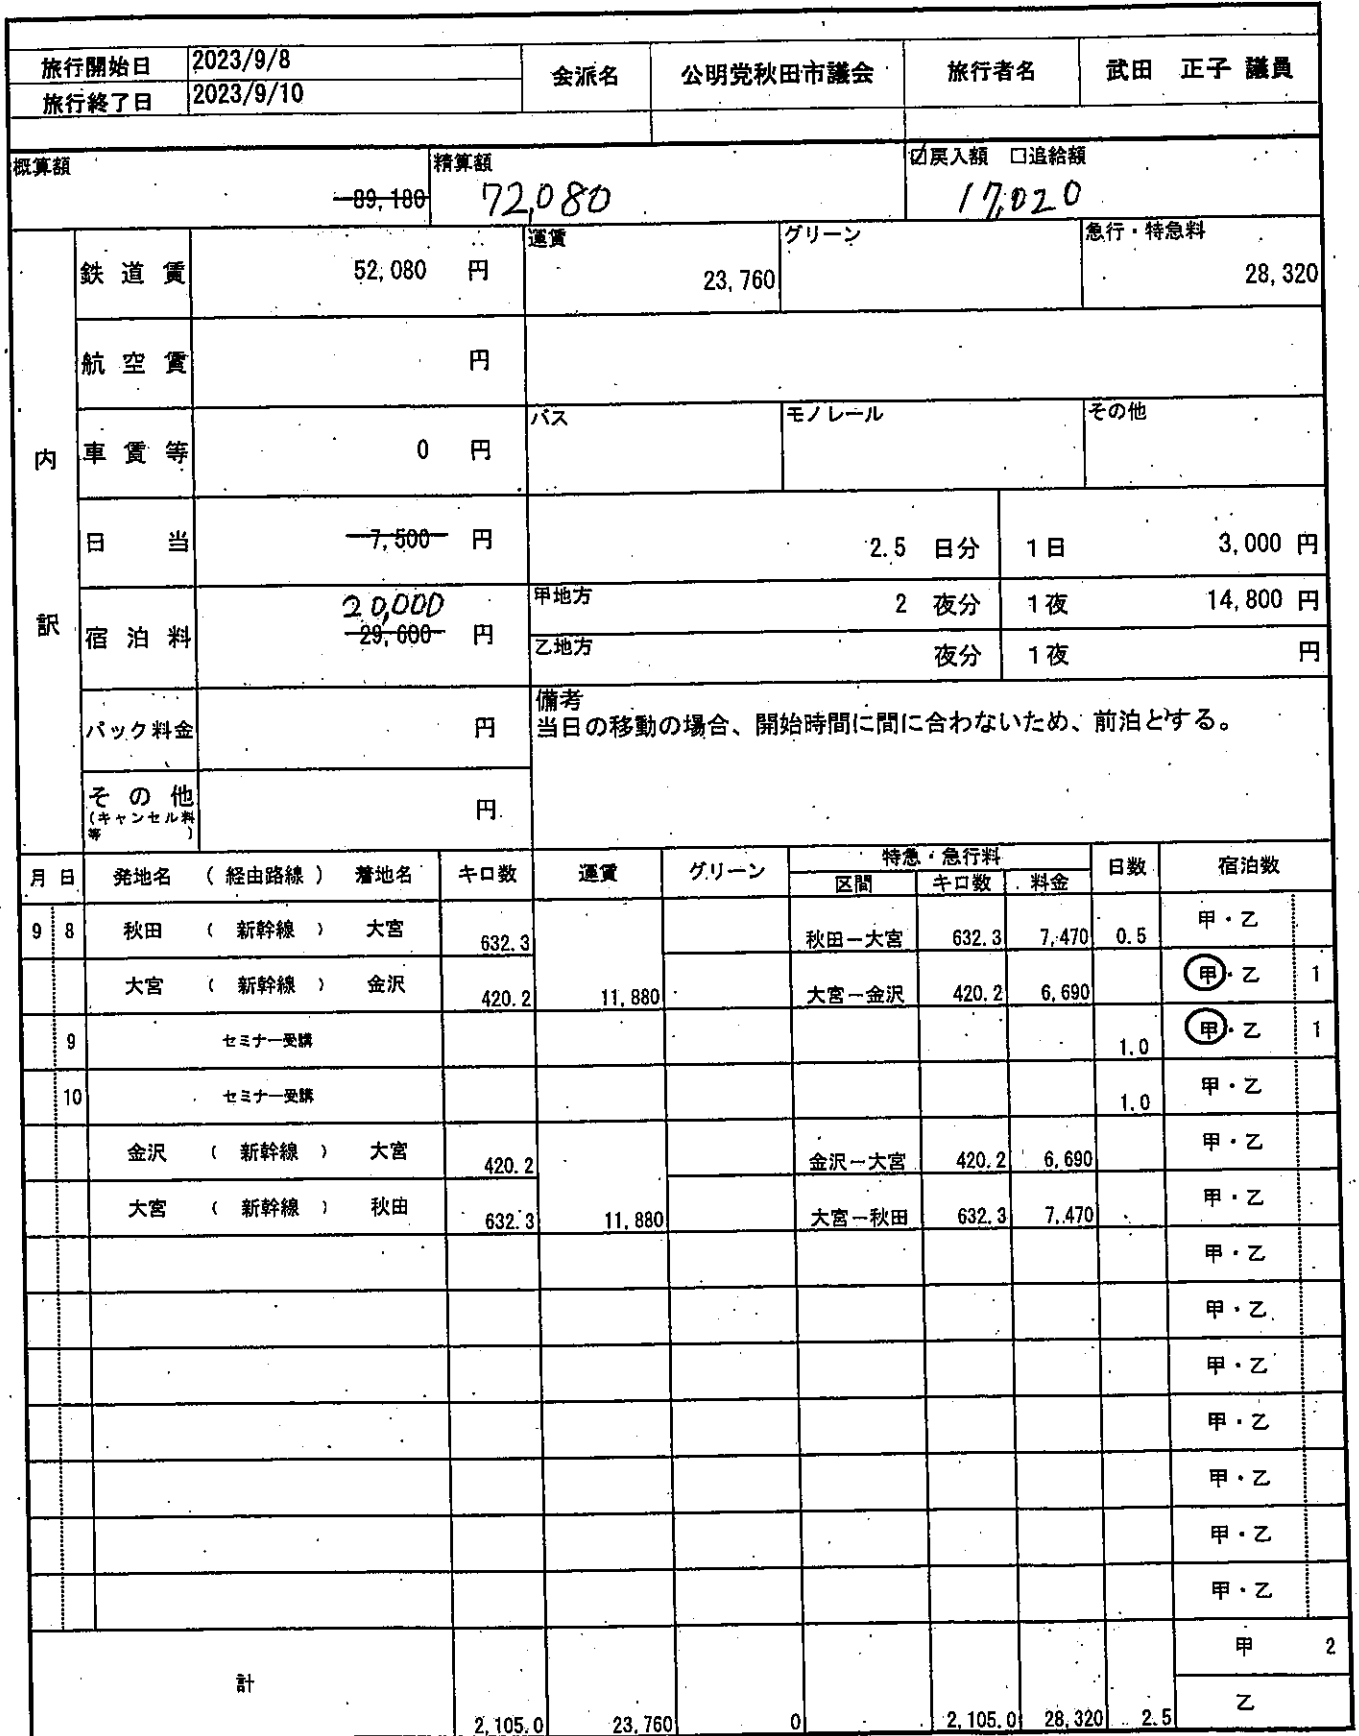 旅行開始日 2023/9/8 会派名 公明党秋田市議会 旅行者名 武田 正子 議員
旅行終了日 2023/9/10
概算額 89,180 精算額 72,080 ☑戻入額 □追給額 17,020
内訳
鉄道賃 52,080 円 運賃 23,760 グリーン 急行・特急料 28,320
航空賃 円
車賃等 0 円 バス モノレール その他
日当 7,500 円 2.5 日分 1日 3,000 円
宿泊料 20,000 29,600 円 甲地方 2 夜分 1夜 14,800 円
乙地方 夜分 1夜 円
パック料金 円 備考
当日の移動の場合、開始時間に間に合わないため、前泊とする。
その他 (キャンセル料等) 円
月 日 発地名 (経由路線)着地名 キロ数 運賃 グリーン 特急・急行料 日数 宿泊数
区間 キロ数 料金
9 8 秋田 (新幹線) 大宮 632.3 秋田ー大宮 632.3 7,470 0.5 甲・乙
大宮 (新幹線) 金沢 420.2 11,880 大宮ー金沢 420.2 6,690 甲・乙 1
9 セミナー受講 1.0 甲・乙 1
10 セミナー受講 1.0 甲・乙
金沢 (新幹線) 大宮 420.2 金沢ー大宮 420.2 6,690 甲・乙
大宮 (新幹線) 秋田 632.3 11,880 大宮ー秋田 632.3 7,470 甲・乙
甲・乙
甲・乙
甲・乙
甲・乙
甲・乙
甲・乙
甲・乙
甲 2
計 2,105.0 23,760 0 2,105.0 28,320 2.5 乙